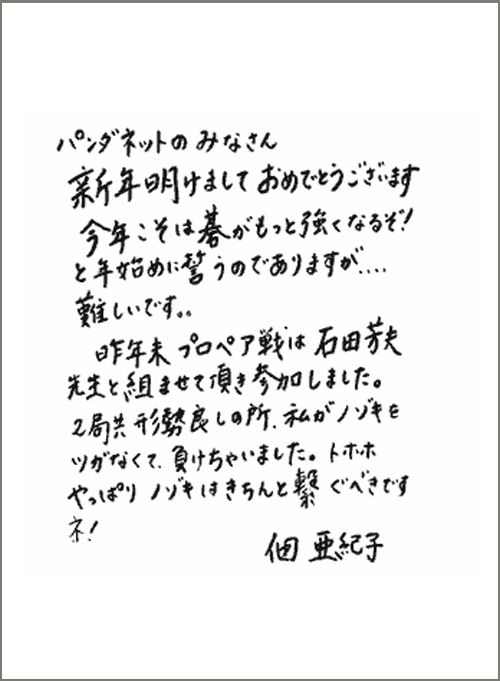 パンダネットのみなさん
新年明けましておめでとうございます
今年こそは碁がもっと強くなるぞ!
と年始めに誓うのでありますが....
難しいです。。
昨年末プロペア戦は石田芳夫
先生と組ませて頂き参加しました。
2局共形勢良しの所、私がノゾキを
ツガなくて、負けちゃいました。トホホ
やっぱりノゾキはきちんと繋ぐべきです
ネ!
佃亜紀子